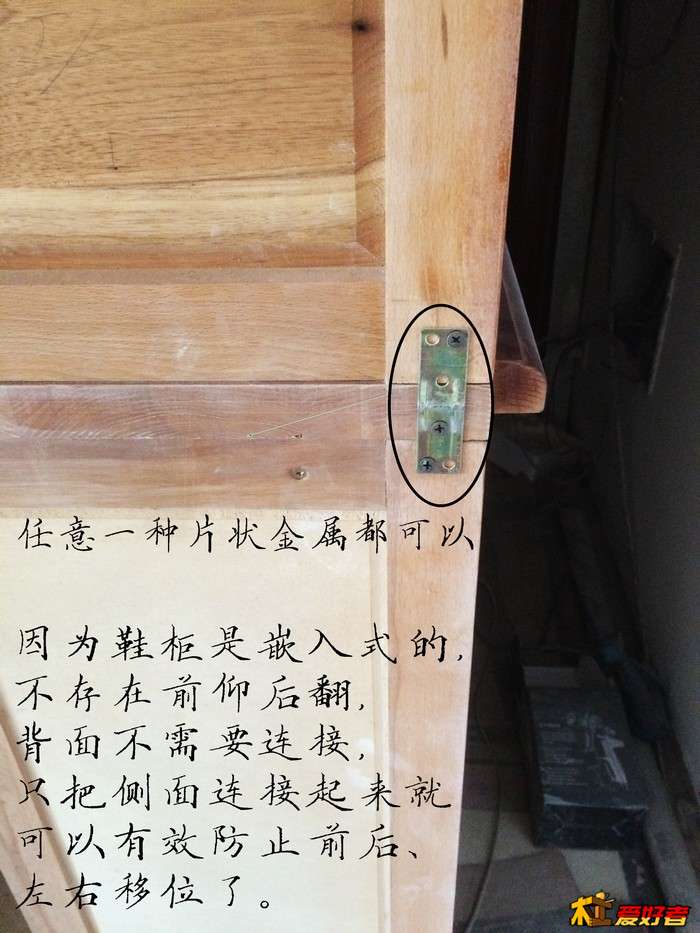 任意一种片状金属都可以
因为鞋柜是嵌入式的,
不存在前仰后翻,
背面不需要连接,
只把侧面连接起来就
可以有效防止前后、
左右移位了。
木工爱好者